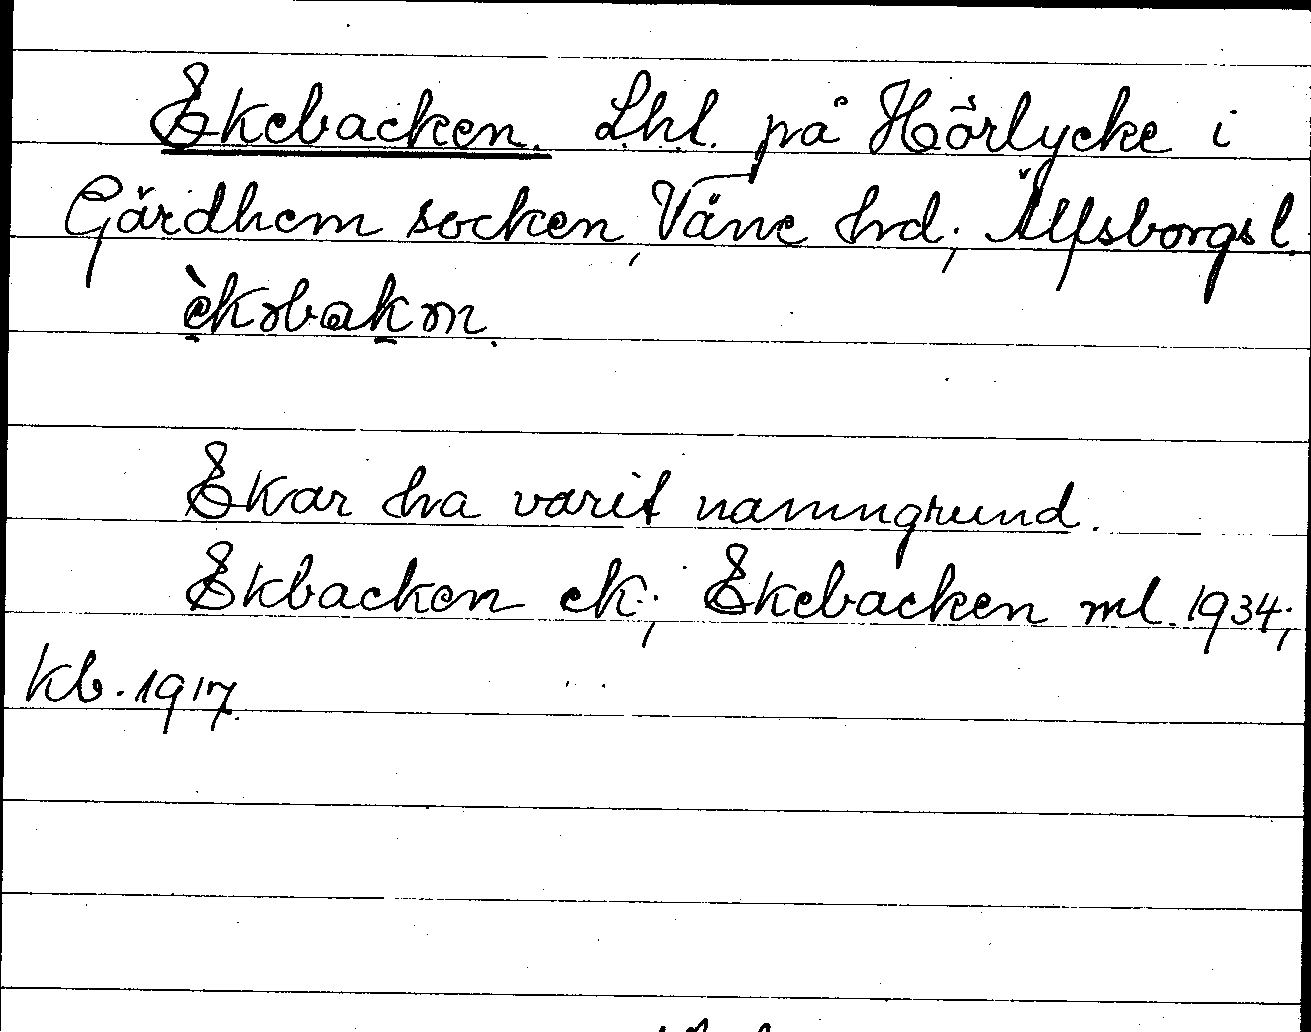 Ekebacken. Lhl. på Hörlycke i
Gärdhem socken, Väne hd; Älfsborgs l.
èkəbakən.
Ekar ha varit namngrund.
Ekbacken ek; Ekebacken ml. 1934;
kb. 1917.